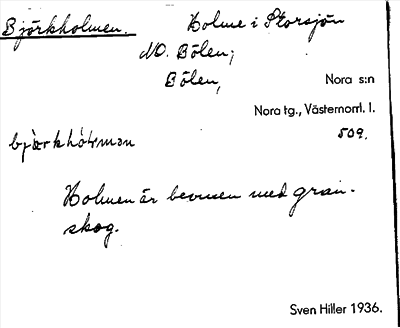 Björkholmen. Holme i Storsjön
NO. Bölen;
Bölen, Nora s:n
Nora tg., Västernorrl. l.
509.
Holmen är bevuxen med gran-
skog.
Sven Hiller 1936.